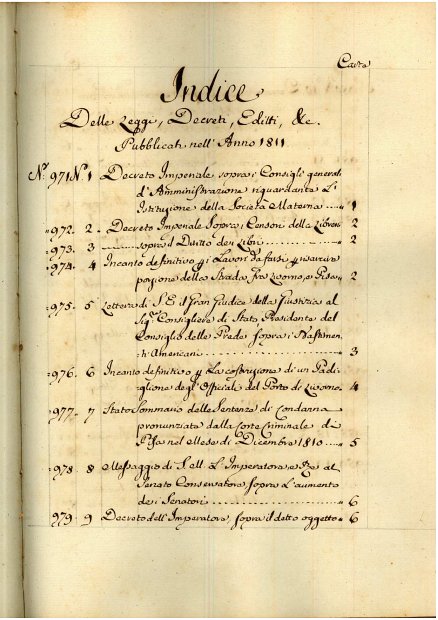 Carte
Indice
Delle Leggi, Decreti, Editti, &c.
Pubblicati nell'Anno 1811
N.º 971 N.º 1 Decreto Imperiale sopra i Consigli generali
d'Amministrazione riguardante L'
Istituzione della Società Materna 1
972. 2. Decreto Imperiale Sopra i Censori della 2
973. 3 sopra il Diritto dei Libri 2
974. 4 Incanto definitivo Lavori da farsi
della Strada fra Livorno, e Pisa 2
975. 5 Lettera di S. E. il Gran Giudice della Giustizia al
Sig.r Consigliere di Stato Presidente del
Consiglio delle Prede sopra i Bastimen
ti Americani 3
976. 6 Incanto definitivo La costruzione di un Padi
glione degl'Officiali del Porto di Livorno 4
977. 7 Stato Sommario delle Sentenze di Condanna
pronunziate dalla Corte Criminale di
Pisa nel Mese di Dicembre 1810 5
978. 8 Messaggio di S. M. L'Imperatore, e Re al
Senato Conservatore sopra L'aumento
dei Senatori 6
979. 9 Decreto dell'Imperatore sopra il detto oggetto 6